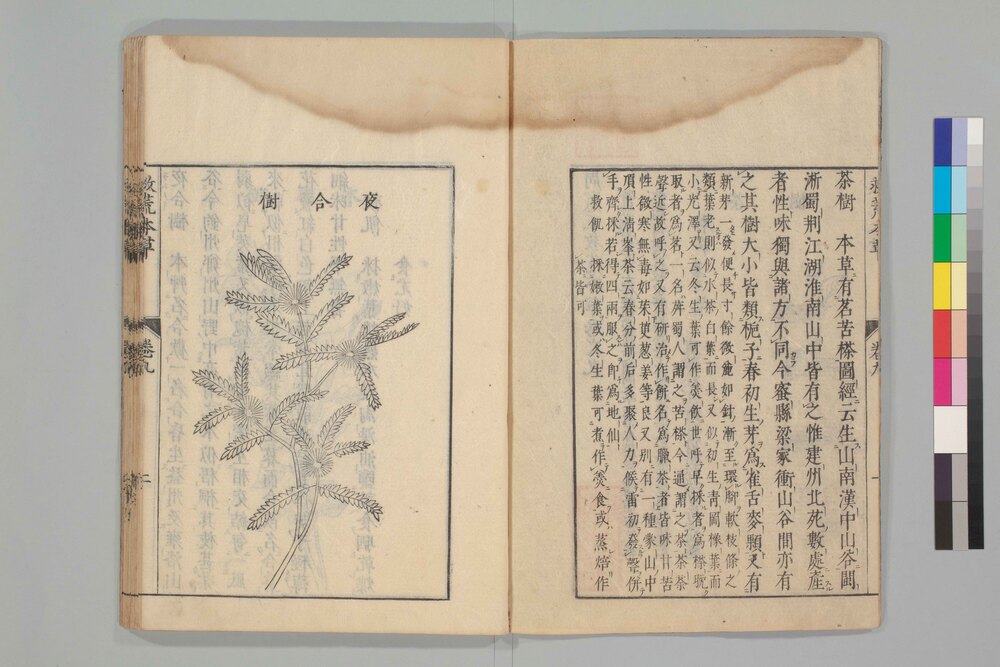 茶樹　本草有茗苦𣗪圖經云生山南漢中山谷閩
淅蜀荆江湖淮南山中皆有之惟建州北苑數處産
者性味獨與諸方不同今密縣梁家衝山谷間亦有
之其樹大小皆類梔子春初生芽為雀舌麥顆又有
新芽一發便長寸餘微麄如針漸至環脚軟枝條之
類葉老則似水茶臼葉而長又似初生青岡橡葉而
小光澤又云冬生葉可作羮飲世呼早採者為𣗪晚
取者為茗一名荈蜀人謂之苦𣗪今通謂之茶茶荼
聲近故呼之又有研治作餅名為臘茶者皆味甘苦
性微寒無毒加茱萸葱姜等良又別有一種蒙山中
頂上清峯茶云春分前后多聚人力候雷初發聲併
手齊採若得四兩服之即為地仙
救飢　採嫩葉或冬生葉可煮作羮食或蒸焙作
茶皆可
夜合樹
救荒本草
卷九
二